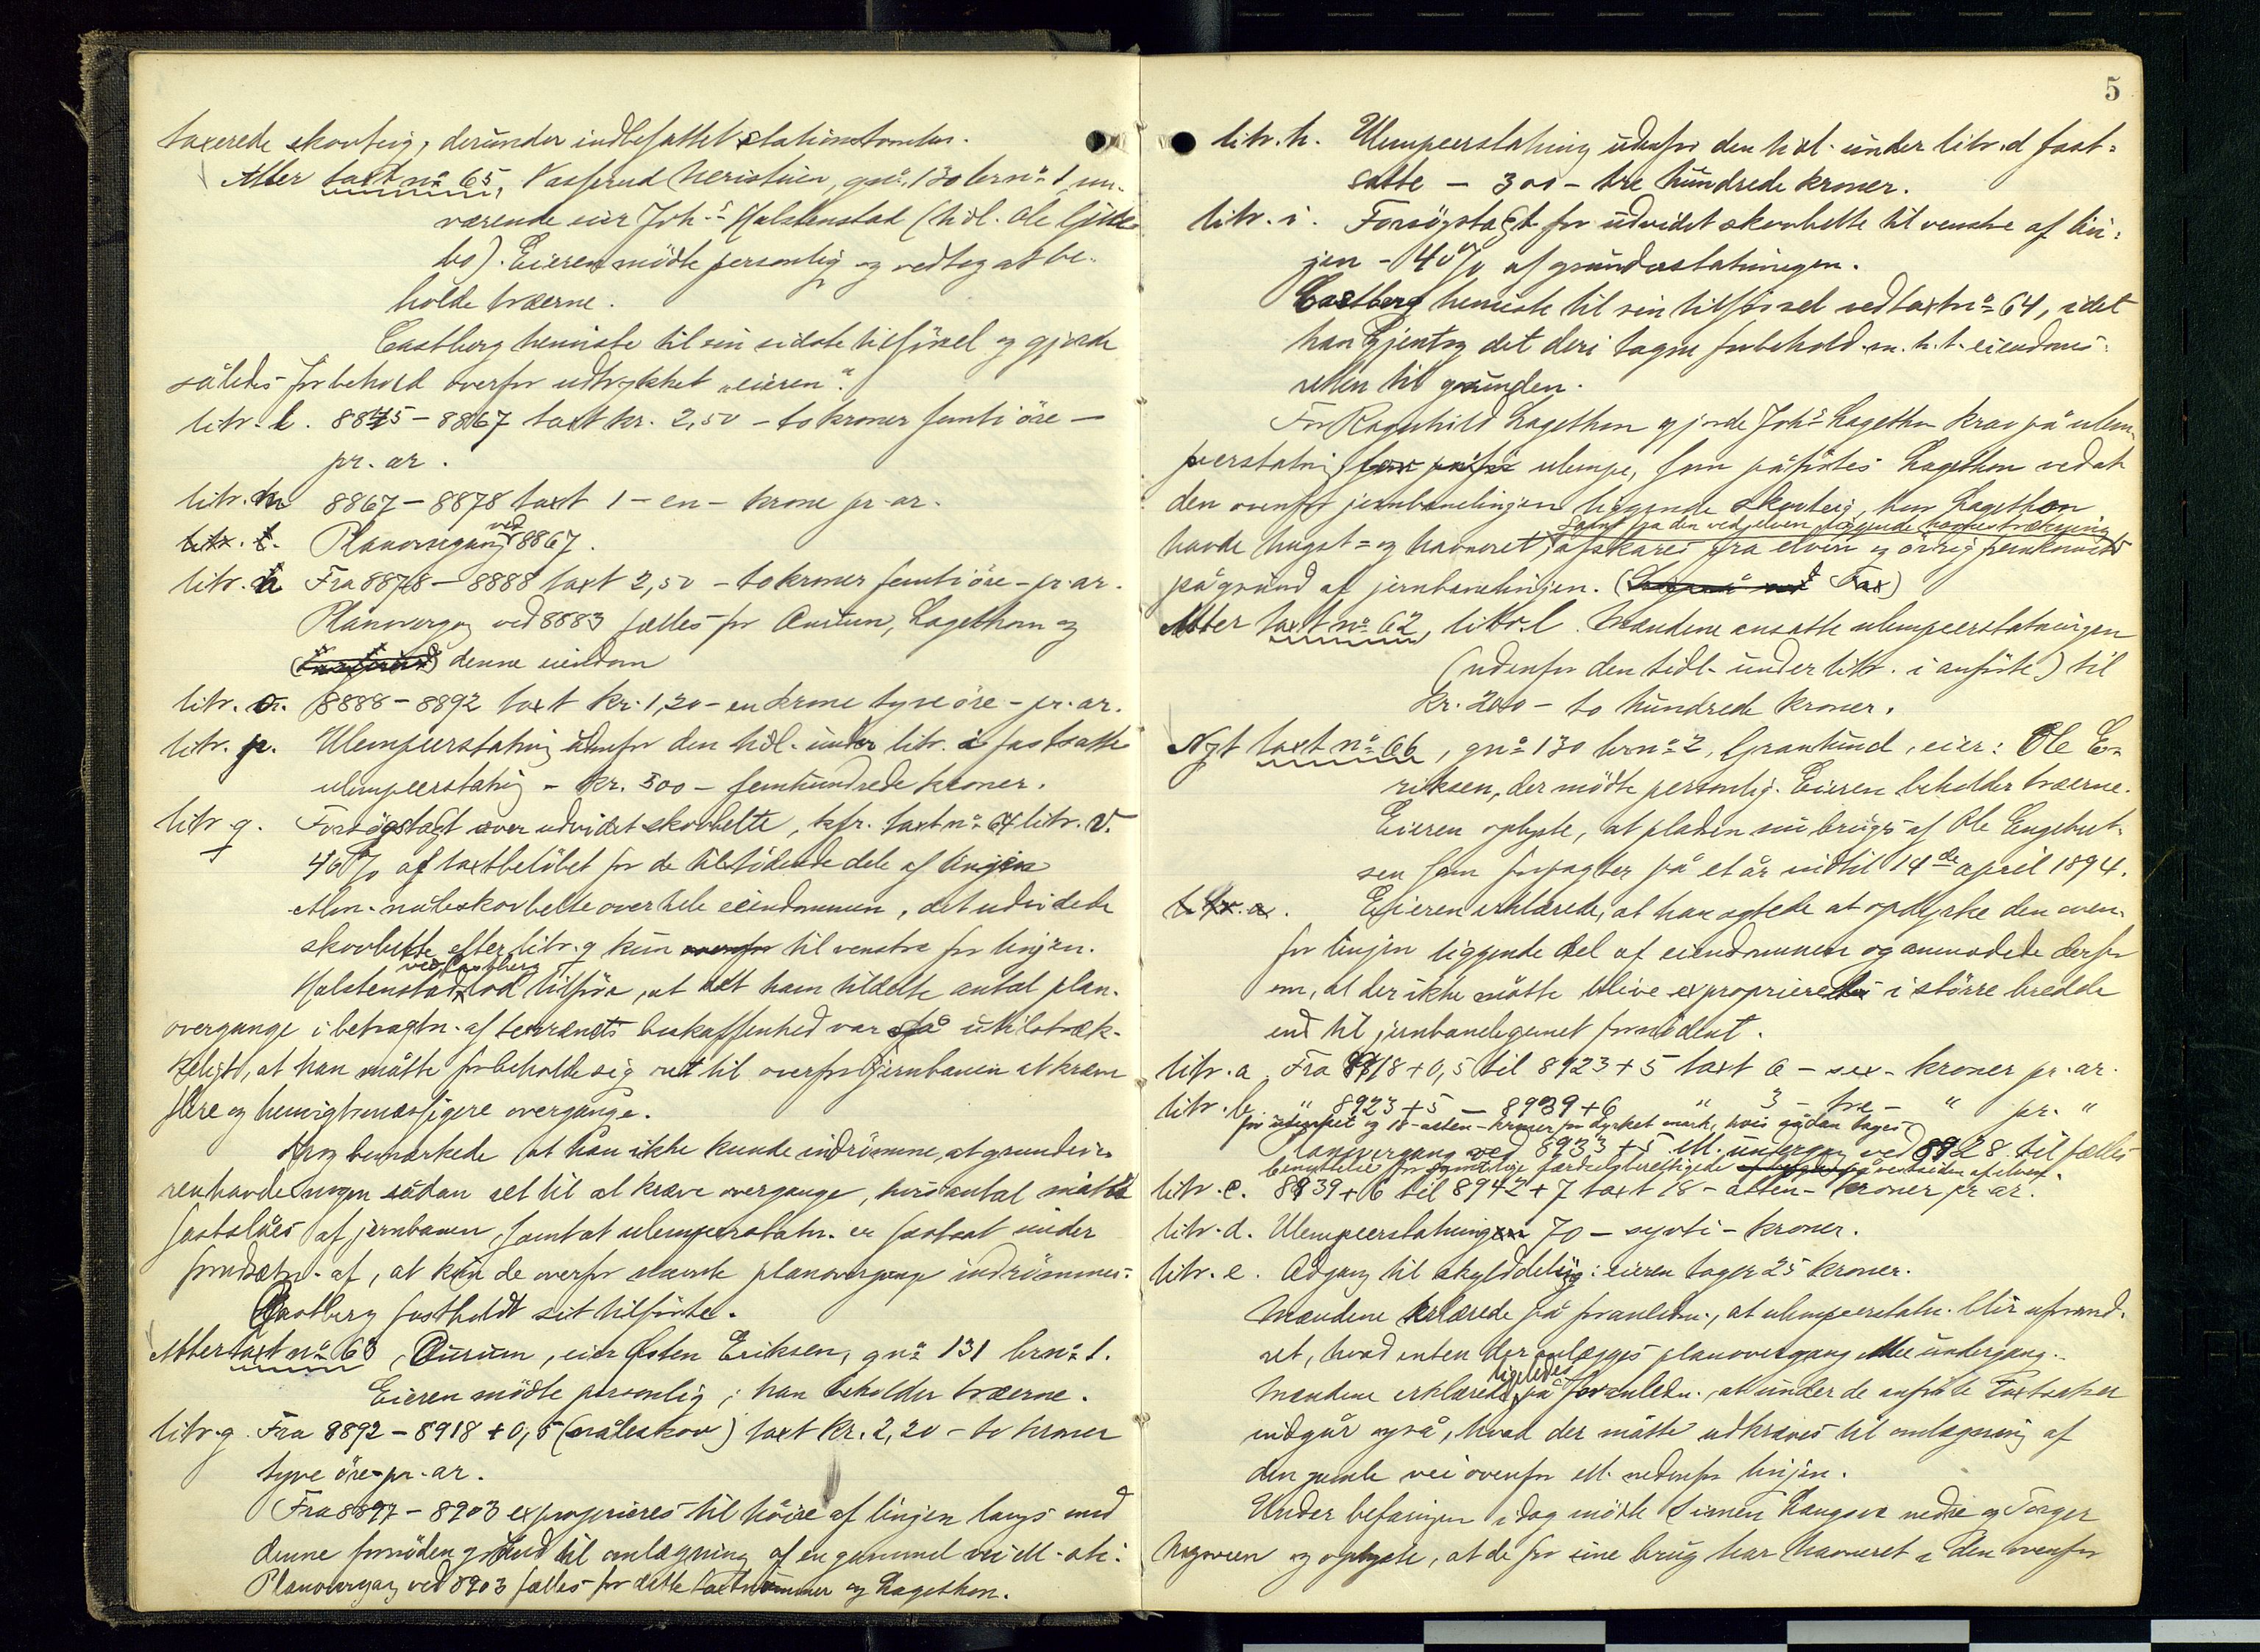 taxerede skovteig, derunder indbefattet stationstomten.
Atter taxt no 65, gno. 130 brno 1, nu-
værende eier Johs Halstenstad (tidl. Ole
bø). Eieren mødte personlig og vedtog at be-
holde træerne.
Castberg henviste til sin sidste tilførsel og gjorde
således forbehold overfor udtrykket "eieren".
litr. l. 8845 - 8867 taxt kr. 2,50 - to kroner femti øre -
pr. ar.
litr. m 8867 - 8878 taxt 1 - en - krone pr. ar.
Planovergang ved 8867.
litr. n Fra 8878 - 8888 taxt 2,50 - to kroner femti øre - pr. ar.
Planovergang ved 8883 fælles for Aurtun, Lagethon og
denne eiendom
litr. o. 8888 - 8892 taxt kr. 1,20 - en krone tyve øre - pr. ar.
litr. p. Ulempeerstatning udenfor den tidl. under litr. i fastsatte
ulempeerstatning - kr. 500 - femhundrede kroner.
litr. q. Forsøgstaxt over udvidet skovbelte, kfr. taxt no 64 litr. v.
40 % af taxtbeløbet for de tilstødende dele af linjen
Alm. nåleskovbelte over hele eiendommen, det udvidede
skovbelte efter litr. q kun til venstre for linjen.
Halstenstad ved Castberg lod tilføre, at det ham tildelte antal plan-
overgange i betragtn. af terrænets beskaffenhed var så utilstræk-
keligt, at han måtte forbeholde sig ret til overfor jernbanen at kræve
flere og hensigtsmæssigere overgange.
bemærkede at han ikke kunde indrømme, at grundeie-
ren havde nogen sådan ret til at kræve overgange, hvis antal måtte
fastslåes af jernbanen, samt at ulempeerstatn. er fastsat under
forudsætn. af, at kun de overfor nævnte planovergange indrømmes.
Castberg fastholdt sit tilførte.
Atter taxt no 63, Aurtun, eier Østen Eriksen, gno 131 brno 1.
Eieren mødte personlig; han beholder træerne.
litr. q. Fra 8892 - 8918 + 0,5 (nåleskov) taxt kr. 2,20 - to kroner
tyve øre - pr. ar.
Fra 8897 - 8903 exproprieres til høire af linjen langs med
denne fornøden grund til omlægning af en gammel vei ell. sti.
Planovergang ved 8903 fælles for dette taxtnummer og Lagethon.
5
litr. h. Ulempeerstatning udenfor den tidl. under litr. d fast-
satte - 300 - tre hundrede kroner.
litr. i. Forsøgstaxt for udvidet skovbelte til venstre af lin-
jen - 40 % af grunderstatningen.
Castberg henviste til sin tilførsel ved taxtno 64, idet
han gjentog det deri tagne forbehold m. h. t. eiendoms-
retten til grunden.
For Ragnhild Lagethon gjorde Johs Lagethon krav på ulem-
peerstatning for ulempe, som påførtes Lagethon ved at
den ovenfor jernbanelinjen liggende skovteig, hvor Lagethon
samt fra den ved elven liggende havnestrækning
havde hugst- og havneret, afskares fra elven og øvrig
på grund af jernbanelinjen.
Atter taxt no 62, litr. l. Mændene ansatte ulempeerstatningen
(udenfor den tidl. under litr. i anførte) til
kr. 200 - to hundrede kroner.
Nyt taxt no 66, gno 130 brno 2, Grantund, eier: Ole E-
riksen, der mødte personlig. Eieren beholder træerne.
Eieren oplyste, at pladsen nu bruges af Ole Engebret-
sen som forpagter på et år indtil 14de april 1894.
Eieren erklærede, at han agtede at opdyrke den oven-
for linjen liggende del af eiendommen og anmodede derfor
om, at der ikke måtte blive exproprieret i større bredde
end til jernbanelegemet fornødent.
litr. a. Fra 8918 + 0,5 til 8923 + 5 taxt 6 - sex - kroner pr. ar.
litr. b. " 8923 + 5 - 8939 + 6 " 3 - tre - " pr. "
og 18 - atten - kroner for dyrket mark, hvis sådan tages
Planovergang ved 8933 + 5 ell. undergang ved 8928 til fælles
benyttelse for samtlige færdselsberettigede på vestsiden af elven.
litr. c. 8939 + 6 til 8942 + 7 taxt 18 - atten - kroner pr. ar.
litr. d. Ulempeerstatning 70 - sytti - kroner.
litr. e. Adgang til skylddeling: eieren tager 25 kroner.
Mændene erklærede på foranledn., at ulempeerstatn. blir uforand-
ret, hvad enten der anlægges planovergang eller undergang.
Mændene erklærede ligeledes på foranledn., at under de anførte taxter
indgår også, hvad der måtte udkræves til omlægning af
den gamle vei ovenfor ell. nedenfor linjen.
Under befaringen idag mødte Simen nedre og Torger
og oplyste, at de for sine brug har havneret i den ovenfor